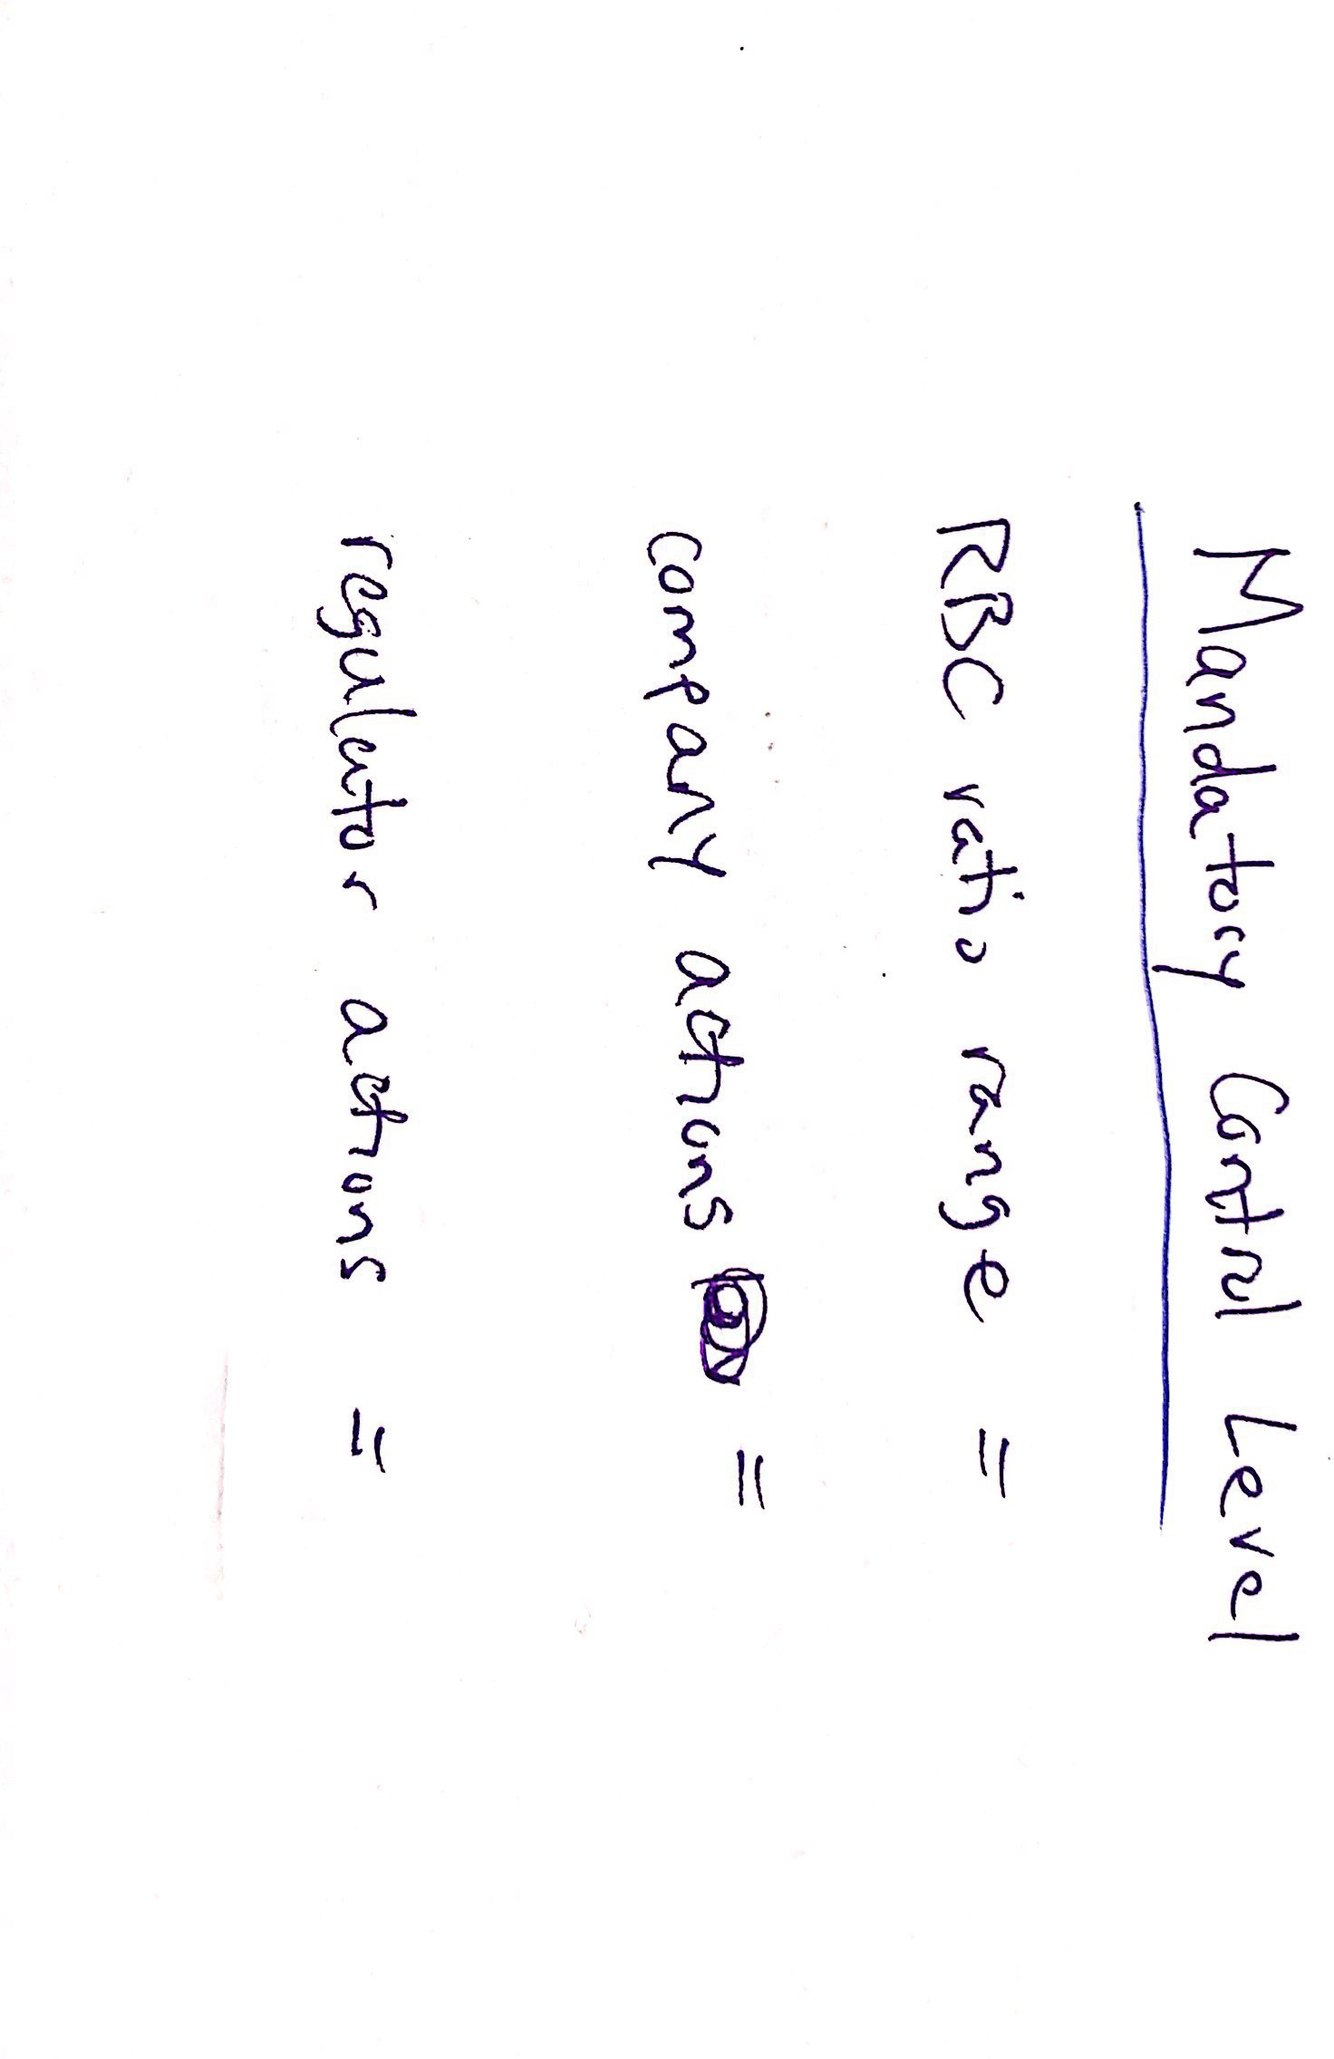 Mandatory Control Level
RBC ratio range =
company actions =
regulator actions =